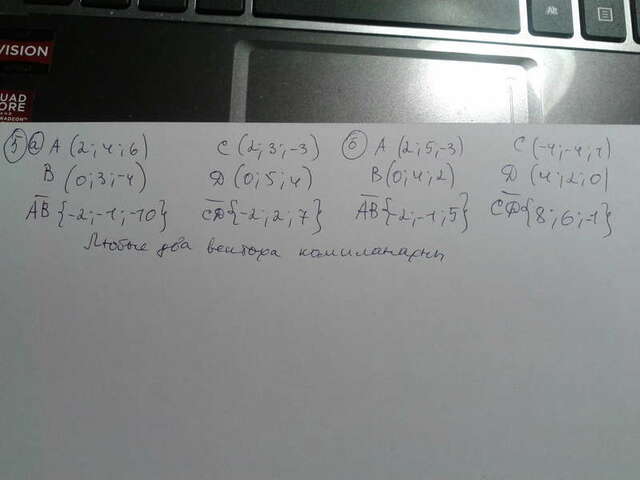 VISION
Alt
QUAD
CORE
AND
RADEON™
5 а A (2; 4; 6) C (2; 3; -3) б A (2; 5; -3) C (-4; -4; 1)
B (0; 3; -4) D (0; 5; 4) B (0; 4; 2) D (4; 2; 0)
AB {-2; -1; -10} CD {-2; 2; 7} AB {-2; -1; 5} CD {8; 6; -1}
Любые два вектора компланарны